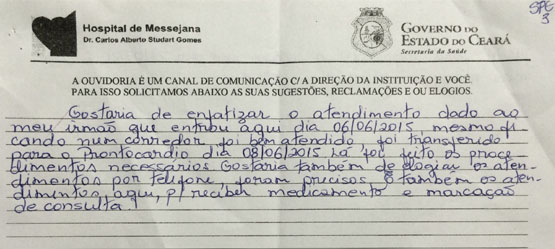 SPE
3
Hospital de Messejana
Dr. Carlos Alberto Studart Gomes
GOVERNO DO
ESTADO DO CEARÁ
Secretaria da Saúde
A OUVIDORIA É UM CANAL DE COMUNICAÇÃO C/ A DIREÇÃO DA INSTITUIÇÃO E VOCÊ.
PARA ISSO SOLICITAMOS ABAIXO AS SUAS SUGESTÕES, RECLAMAÇÕES E OU ELOGIOS.
Gostaria de enfatizar o atendimento dado ao
meu irmão que entrou aqui dia 06/06/2015, mesmo fi
cando num corredor, foi bem atendido, foi transferido
para o Prontocardio dia 08/06/2015 Lá foi feito os proce
dimentos necessários Gostaria também de elogiar os aten-
dimentos por telefone, foram precisos, e também os aten-
dimentos aqui, p/ receber medicamento e marcação
de consulta!